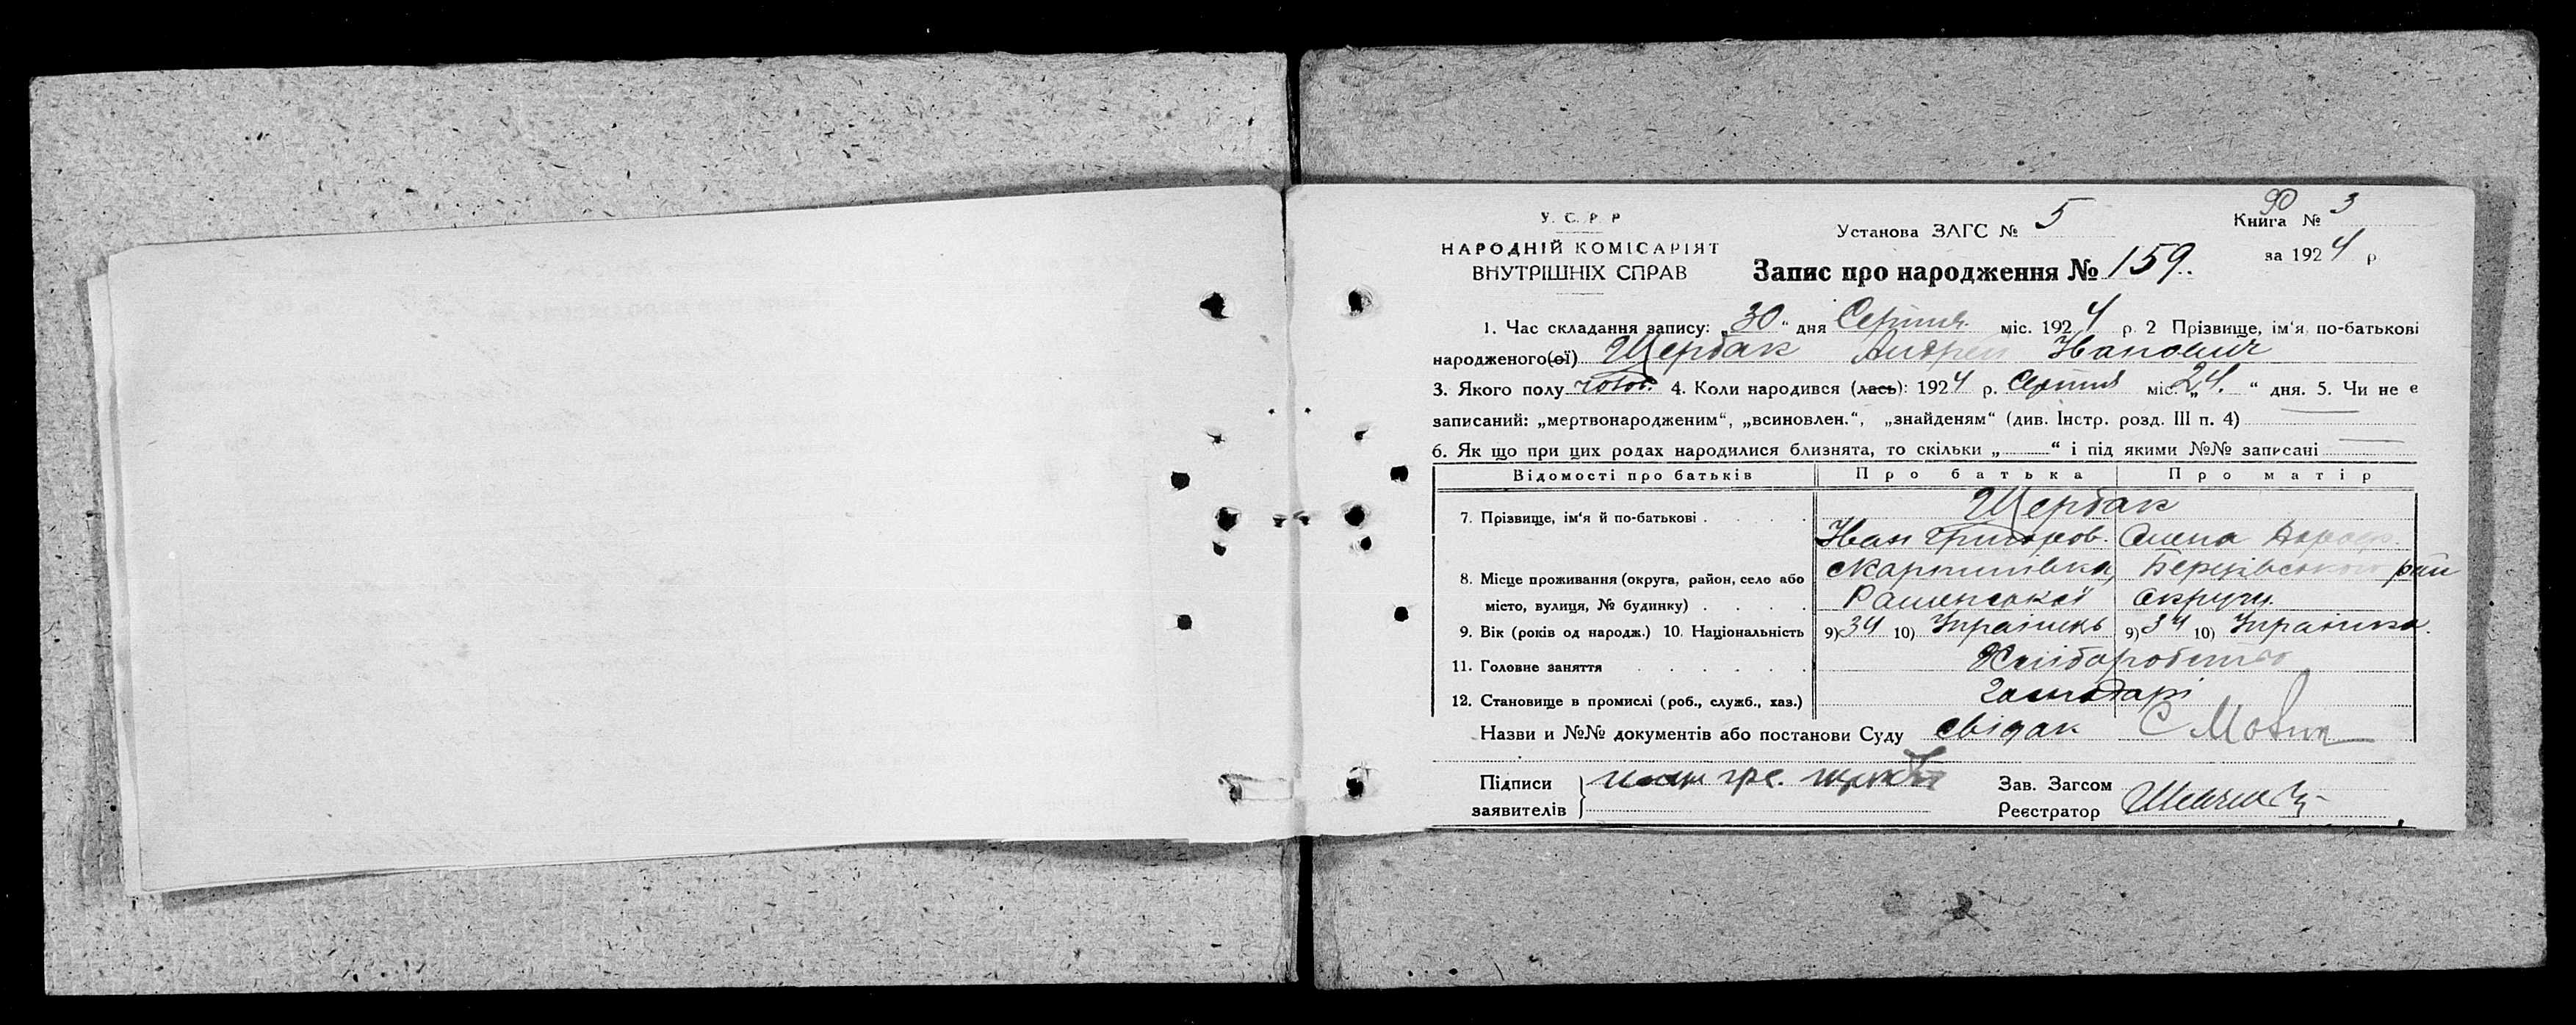 90
У. С. Р. Р
НАРОДНІЙ КОМІСАРІЯТ
ВНУТРІШНІХ СПРАВ
Установа ЗАГС № 5
Книга № 3
за 1924 р
Запис про народження № 159.
1. Час складання запису: „30“ дня Серпня міс. 1924 р. 2 Прізвище, ім'я, по-батькові
народженого(ої) Щербак Андрей Іванович
3. Якого полу чолов. 4. Коли народився (лась): 1924 р. Серпня міс. „24. “ дня. 5. Чи не є
записаний: „мертвонародженим“, „всиновлен.“, „знайденям“ (див. Інстр. розд. III п. 4)
6. Як що при цих родах народилися близнята, то скільки „ “ і під якими №№ записані
Відомості про батьків Про батька Про матір
7. Прізвище, ім'я й по-батькові Щербак
Іван Григоров. Олена
8. Місце проживання (округа, район, село або Березівського рай
місто, вулиця, № будинку) Роменської округи.
9. Вік (років од народж.) 10. Національність 9) 34 10) Украінець 9) 34 10) Украінка.
11. Головне заняття Хліборобство
12. Становище в промислі (роб., служб., хаз.) господарі
Назви и №№ документів або постанови Суду свідак С
Підписи
заявителів
Зав. Загсом
Реєстратор